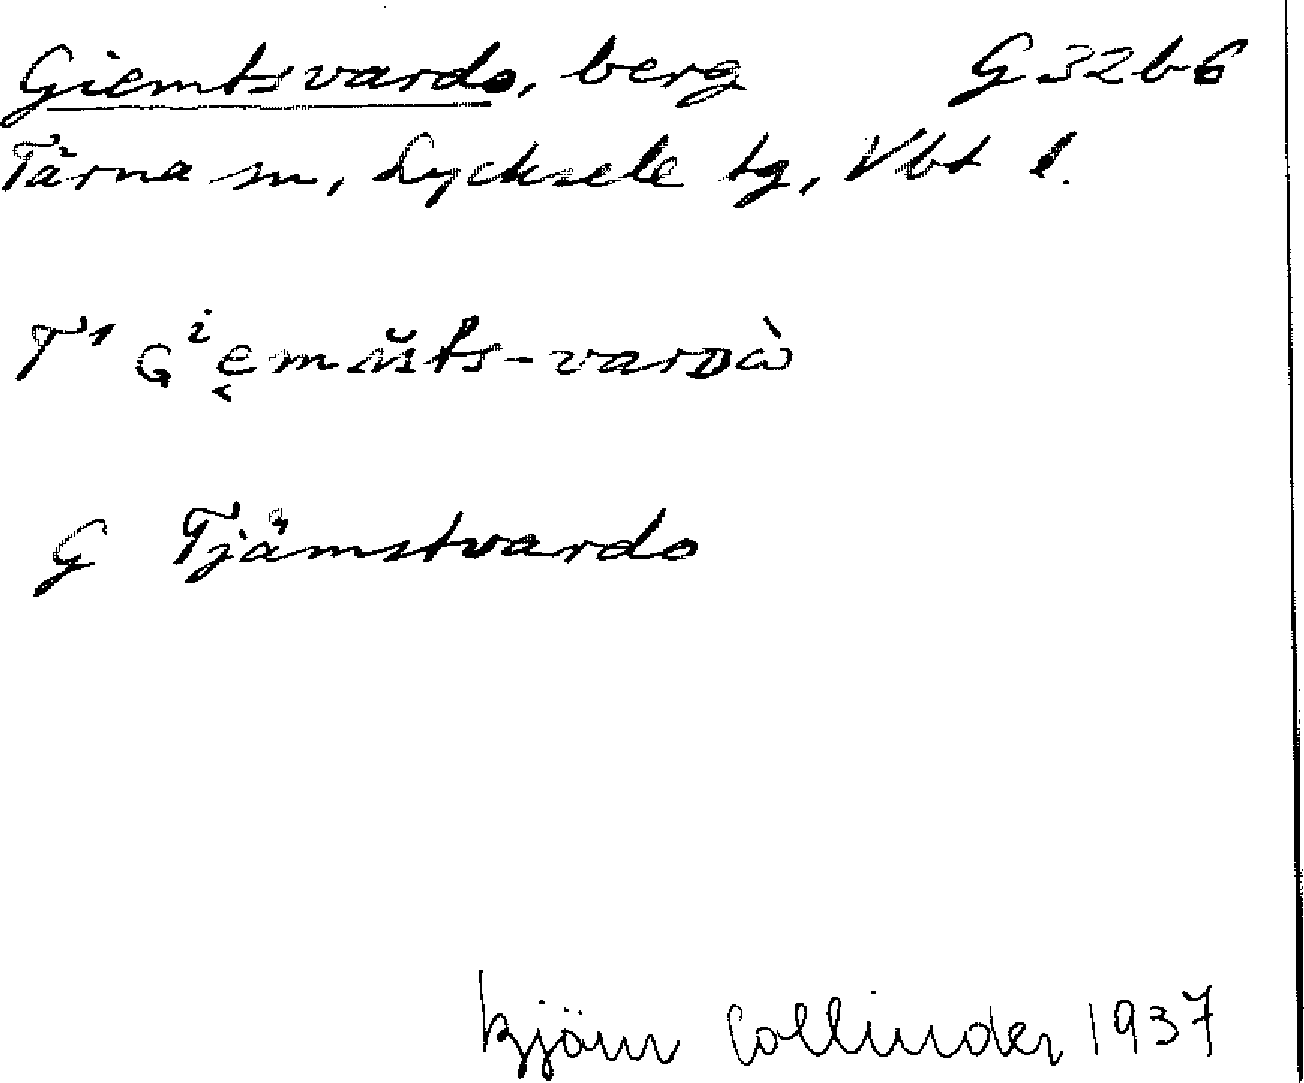 Giemtsvardo, berg G32b6
Tärna sn, Lycksele tg, Vbt l.
T¹ Gⁱe̬mŭts-varᴅȧ̀
G Tjämstvardo
Björn Collinder 1937